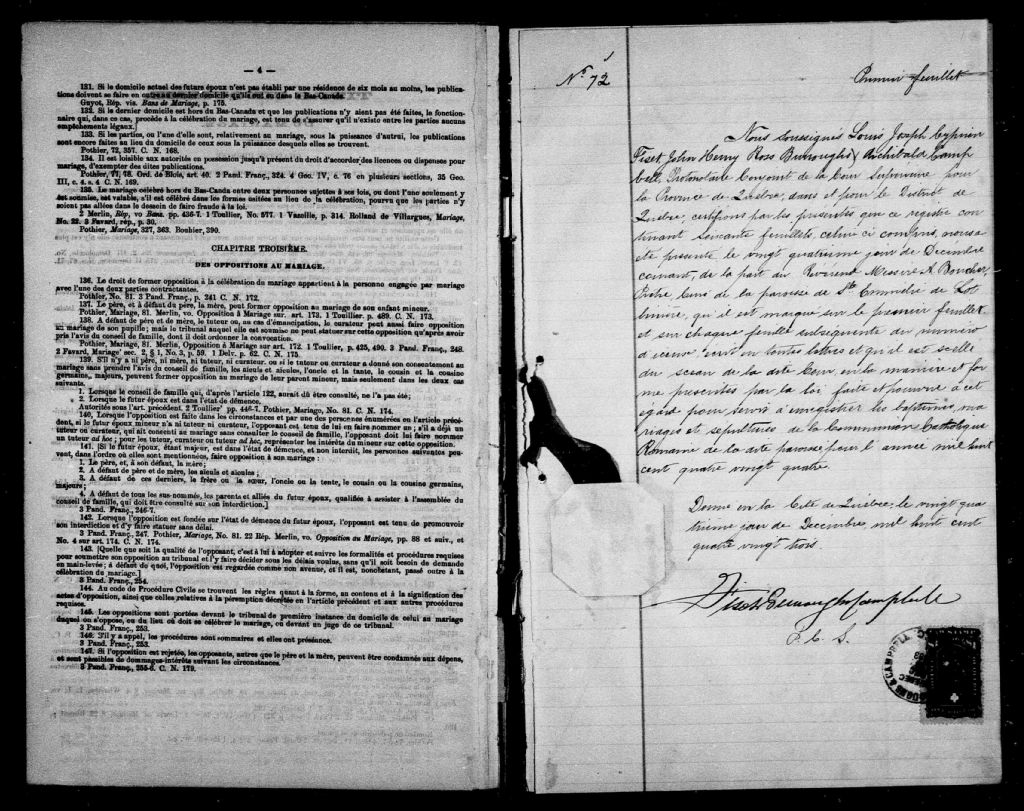 — 4 —
131. Si le domicile actuel des futurs époux n'est pas établi par une résidence de six mois au moins, les publica-
tions doivent se faire en outre au dernier domicile qu'ils ont eu dans le Bas-Canada.
Guyot, Rép. vis. Bans de Mariage, p. 175.
132. Si le dernier domicile est hors du Bas-Canada et que les publications n'y aient pas été faites, le fonction-
naire qui, dans ce cas, procède à la célébration du mariage, est tenu de s'assurer qu'il n'existe entre les parties aucuns
empêchements légaux.]
133. Si les parties, ou l'une d'elle sont, relativement au mariage, sous la puissance d'autrui, les publications
sont encore faites au lieu du domicile de ceux sous la puissance desquels elles se trouvent.
Pothier, 72, 357. C. N. 168.
134. Il est loisible aux autorités en possession jusqu'à présent du droit d'accorder des licences ou dispenses pour
mariage, d'exempter des dites publications.
Pothier, 77, 78. Ord. de Blois, art. 40. 2 Pand. Franç., 324. 4 Geo. IV, c. 76 en plusieurs sections, 35 Geo.
III, c. 4. s. 4 C. N. 169.
135. Le mariage célébré hors du Bas-Canda entre deux personnes sujettes à ses lois, ou dont l'une seulement y
est soumise, est valable, s'il est célébré dans les formes usitées au lieu de la célébration, pourvu que les parties n'y
soient pas allées dans le dessein de faire fraude à la loi.
2 Merlin, Rép, vo Bans. pp. 436-7. 1 Toullier, No. 577. 1 Vazeille, p. 314. Rolland de Villargues, Mariage,
No. 22. 3 Favard, rép., p. 30.
Pothier, Mariage, 327, 363. Bouhier, 390.
CHAPITRE TROISIÈME.
DES OPPOSITIONS AU MARIAGE.
136. Le droit de former opposition à la célébration du mariage appartient à la personne engagée par mariage
avec l'une des deux parties contractantes.
Pothier, No. 81. 3 Pand. Franç., p. 241 C. N. 172.
137. Le père, et à défaut du père, la mère, peut former opposition au mariage de son enfant mineur.
Pothier, Mariage, 81. Merlin, vo. Opposition à Mariage sur. art. 173. 1 Toullier, p. 489. C. N. 173.
138. A défaut de père et de mère, le tuteur ou, au cas d'émancipation, le curateur peut aussi faire opposition
au mariage de son pupille; mais le tribunal auquel elle est soumise ne peut statuer sur cette opposition qu'après avoir
pris l'avis du conseil de famille, dont il doit ordonner la convocation.
Pothier, Mariage, 81. Merlin, Opposition à Mariage sur art. 172. 1 Toullier, p. 425, 490. 3 Pand. Franç., 248.
2 Favard, Mariage' sec. 2, § 1, No. 3, p. 59. 1 Delv. p. 62. C. N. 175.
139. S'il n'y a ni père, ni mère, ni tuteur, ni curateur, ou si le tuteur ou curateur a donné son consentement au
mariage sans prendre l'avis du conseil de famille, les aieuls et aieules, l'oncle et la tante, le cousin et la cousine
germains, majeurs, peuvent former opposition au mariage de leur parent mineur, mais seulement dans les deux cas
suivants.
1. Lorsque le conseil de famille qui, d'après l'article 122, aurait dû être consulté, ne l'a pas été;
2. Lorsque le futur époux est dans l'état de démence.
Autorités sous l'art. précédent. 2 Toullier' pp. 446-7. Pothier, Mariage, No. 81. C. N. 174.
140. Lorsque l'opposition est faite dans les circonstances et par une des personnes énumérées en l'article précé-
dent, si le futur époux mineur n'a ni tuteur ni curateur, l'opposant est tenu de lui en faire nommer un; s'il a déjà un
tuteur ou curateur, qui ait consenti au mariage sans consulter le conseil de famille, l'opposant doit lui faire nommer
un tuteur ad hoc; pour les tuteur, curateur ou tuteur ad hoc, représenter les intérêts du mineur sur cette opposition.
141. [Si le futur époux, étant majeur, est dans l'état de démence, et non interdit, les personnes suivantes peu-
vent, dans l'ordre où elles sont mentionnées, faire opposition à son mariage:
1. Le père, et, à son défaut, la mère;
2. A défaut de père et de mère, les aieuls et aieules;
3. A défaut de ces derniers, le frère ou la sœur, l'oncle ou la tente, le cousin ou la cousine germains,
majeurs;
4. A défaut de tous les sus-nommés, les parents et alliés du futur époux, qualifiés à assister à l'assemblée du
conseil de famille, qui doit être consulté sur son interdiction.]
3 Pand. Franç., 246-7.
142. Lorsque l'opposition est fondée sur l'état de démence du futur époux, l'opposant est tenu de promouvoir
son interdiction et d'y faire statuer sans délai.
3 Pand. Franç., 247. Pothier, Mariage, No. 81. 22 Rép. Merlin, vo. Opposition au Mariage, pp. 88 et suiv., et
No. 4 sur art. 174. C. N. 174.
143. [Quelle que soit la qualité de l'opposant, c'est à lui à adopter et suivre les formalités et procédures requises
pour soumettre son opposition au tribunal et l'y faire décider sous les délais voulus, sans qu'il soit besoin de demande
en main-levée; à défaut de quoi, l'opposition est regardée comme non avenue, et il est, nonobstant, passé outre à la
célébration de mariage.]
3 Pand. Franç., 254.
144. Au code de Procédure Civile se trouvent les règles quant à la forme, au contenu et à la signification des
actes d'opposition, ainsi que celles relatives à la péremption décrétée en l'article précédent et aux autres procédures
requises.
145. Les oppositions sont portées devant le tribunal de première instance du domicile de celui au mariage
duquel on s'oppose, ou du lieu où doit se célébrer le mariage, ou devant un juge de ce tribunal.
3 Pand. Franç., 253.
146. S'il y a appel, les procédures sont sommaires et elles ont préséance.
3 Pand. Franç., 253.
147. Si l'opposition est rejetée, les opposants, autres que le père et la mère, peuvent être condamnés aux dépens,
et sont passibles de dommages-intérêts suivant les circonstances.
3 Pand. Franç., 255-6. C. N. 179.
No 72
Premier feuillet
Nous soussignés Louis Joseph Cyprien
Fiset, John Henry Ross Burroughs & Archibald Camp
bell, Protonotaire Conjoint de la Cour Supérieure pour
la Province de Québec, dans et pour le District de
Québec, certifions par les présentes que ce registre con
tenant soixante feuillets, celui ci compris, nous a
été présenté, le vingt quatrième jour de Décembre
courant, de la part du Révérend Messire A. Boucher,
Prêtre Curé de la paroisse de Ste Emmélie de Lot
binière, qu'il est marqué sur le premier feuillet
et sur chaque feuillet subséquent du numéro
d'icelui, écrit en toutes lettres et qu'il est scellé
du sceau de la dite Cour, en la manière et for
me prescrites par la loi, faite et pourvue à cet
égard pour servir à enregistrer les baptêmes, ma
riages et sépultures de la Communion Catholique
Romaine de la dite paroisse, pour l'année mil huit
cent quatre vingt quatre
Donné en la Cité de Québec, le vingt qua
trième jour de Décembre, mil huit cent
quatre vingt trois.
Fiset Burroughs Campbell
P. C. S.